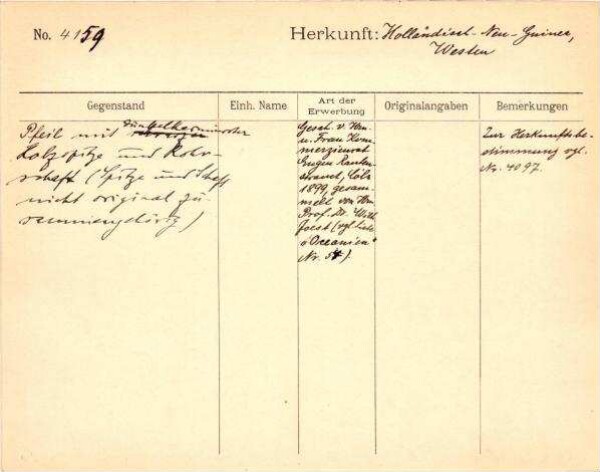 No. 4159
Herkunft: Holländisch-Neu-Guinea,
Westen
Gegenstand
Einh. Name
Art der
Erwerbung
Originalangaben
Bemerkungen
Pfeil mit dunkelkarminroter
Holzspitze und Rohr-
schaft (Spitze und Schaft
nicht original zu-
sammengehörig)
Gesch. v. Hrn.
u. Frau Kom-
merzienrat
Eugen Rauten-
strauch, Cöln
1899, gesam-
melt von Hrn.
Prof. Dr. Wilh.
Joest (vgl. Liste
"Oceanien"
Nr. 54).
Zur Herkunftsbe-
stimmung vgl.
Nr. 4097.